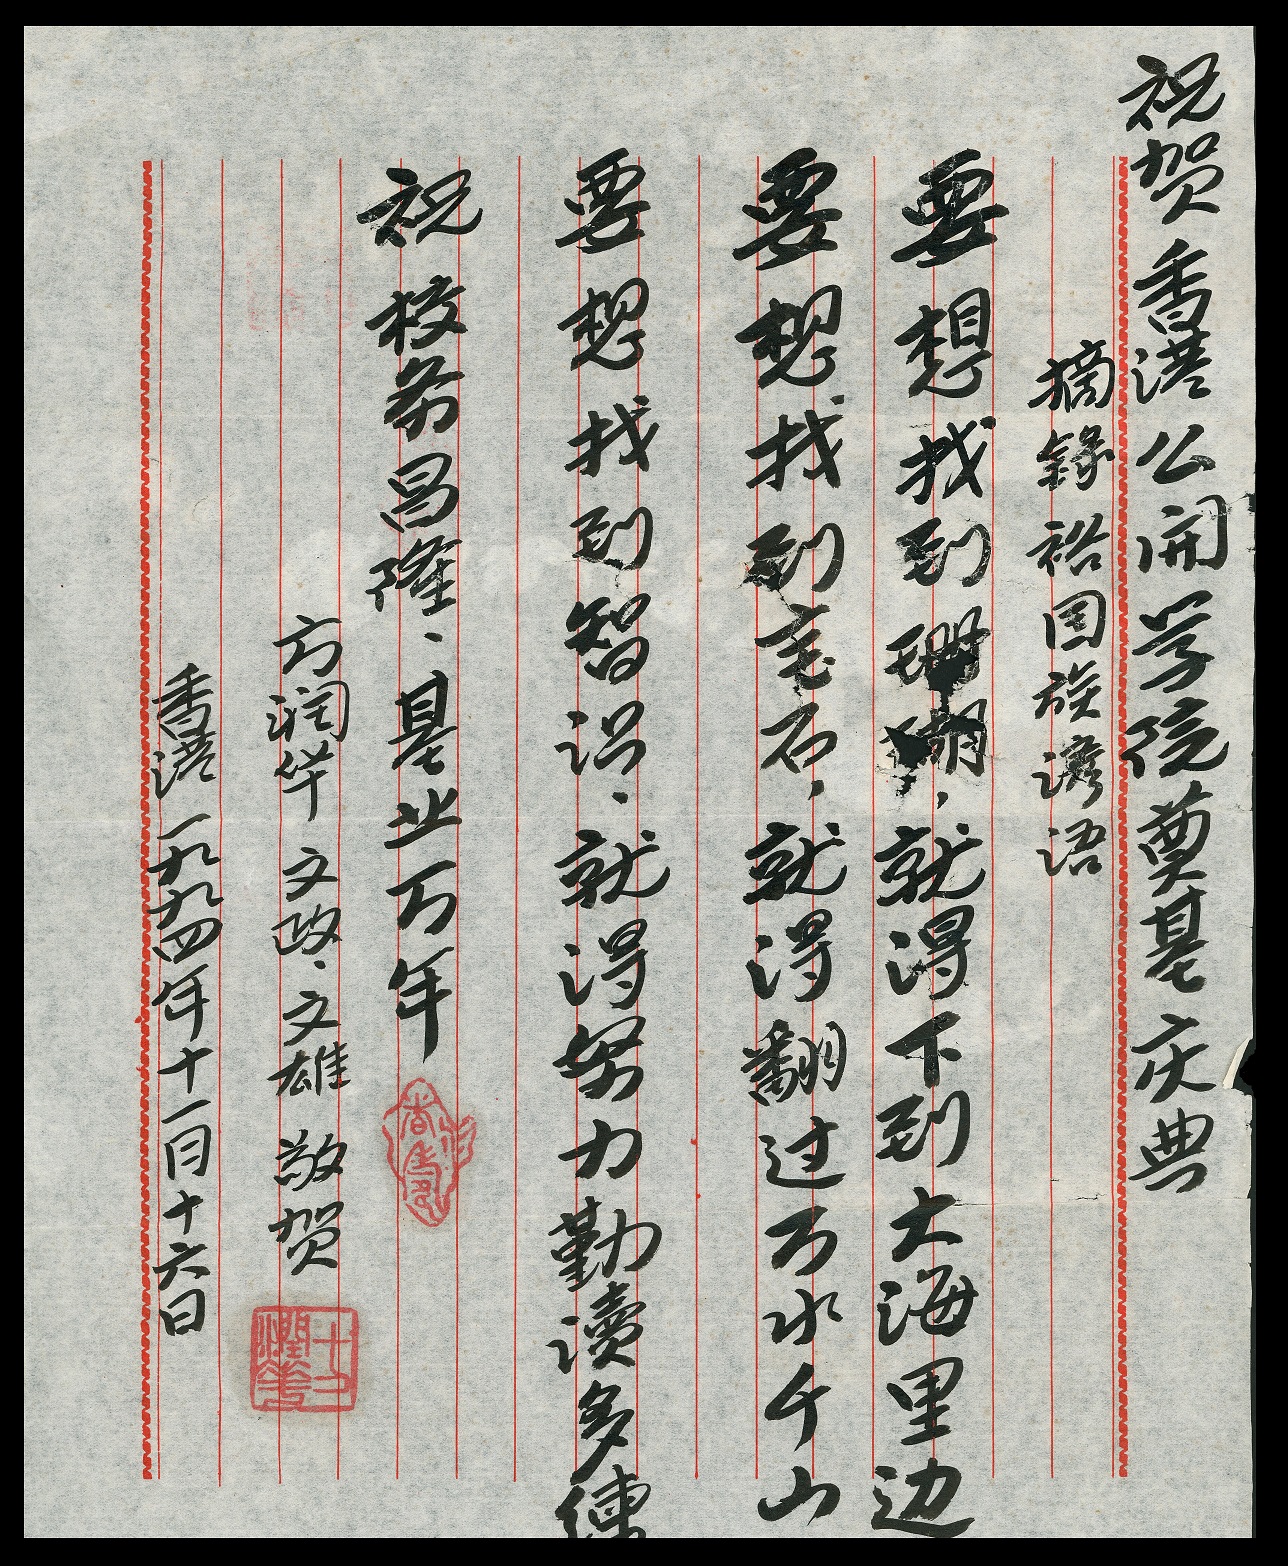 祝贺香港公开学院奠基庆典
摘录裕固族谚语
要想找到珊瑚，就得下到大海里边
要想找到宝石，就得翻过万水千山
要想找到智识、就得努力勤读多练
祝校务昌隆、基业万年
方润华 文政、文雄 敬贺
香港一九九四年十一月十六日
潤華